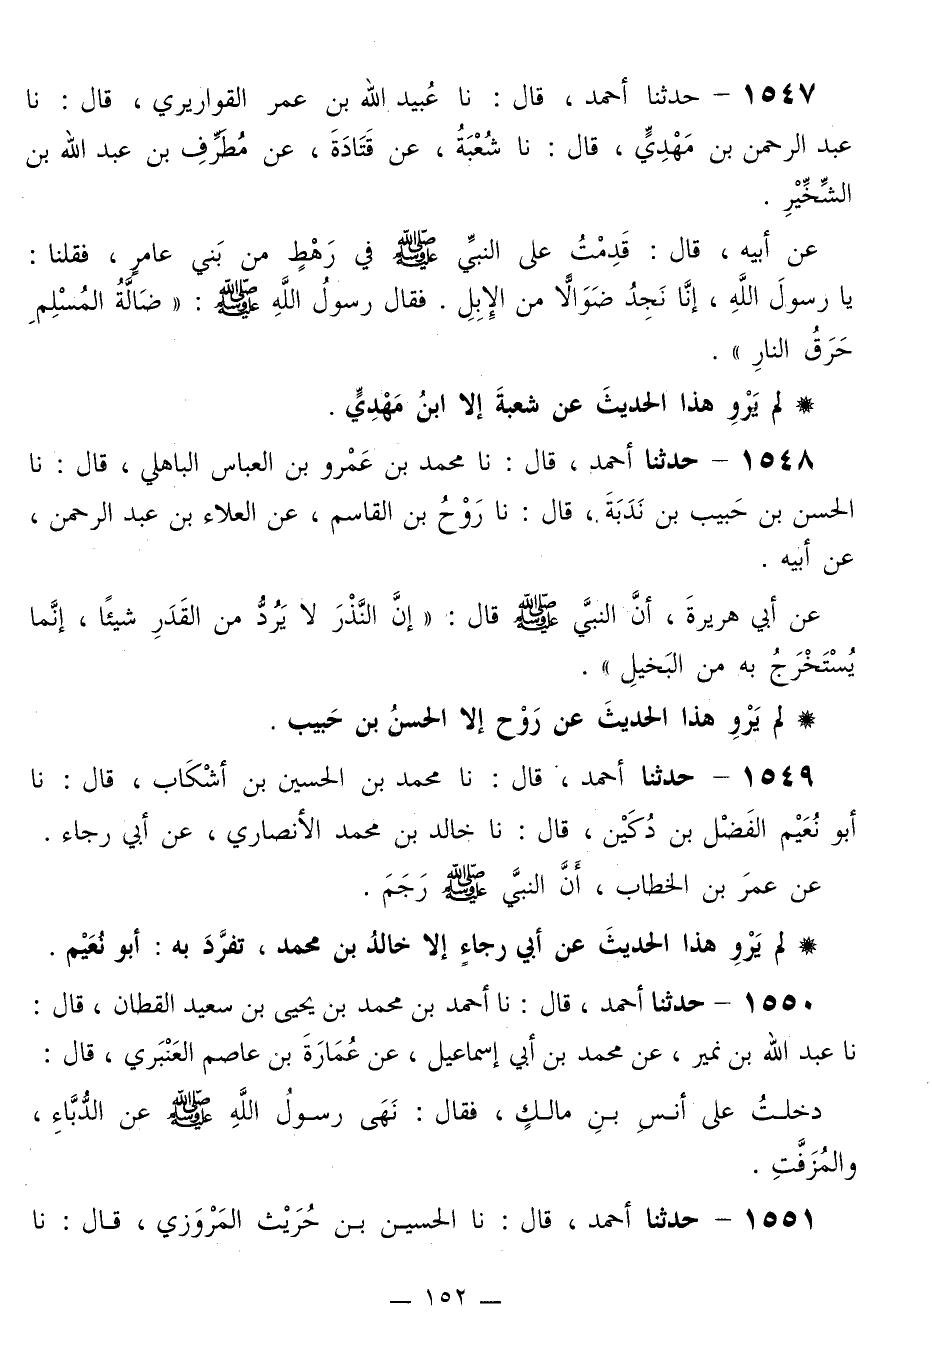 ١٥٤٧ – حدثنا أحمد ، قال : نا عُبيد الله بن عمر القواريري ، قال : نا
عبد الرحمن بن مَهْدِيٍّ ، قال : نا شُعْبَةُ ، عن قَتَادَةَ ، عن مُطَرِّفِ بن عبد الله بن
الشِّخِّيْرِ .
عن أبيه ، قال : قَدِمْتُ على النبيِّ ﷺ في رَهْطٍ من بَني عامرٍ ، فقلنا :
يا رسولَ اللَّهِ ، إنَّا نَجِدُ ضَوَالًّا من الإِبِلِ . فقال رسولُ اللَّهِ ﷺ : « ضَالَّةُ المُسْلِمِ
حَرَقُ النارِ » .
* لم يَرْوِ هذا الحديثَ عن شعبةَ إلا ابنُ مَهْدِيٍّ .
١٥٤٨ – حدثنا أحمد ، قال : نا محمد بن عَمْرو بن العباس الباهلي ، قال : نا
الحسن بن حَبيب بن نَدَبَةَ ، قال : نا رَوْحُ بن القاسم ، عن العلاء بن عبد الرحمن ،
عن أبيه .
عن أبي هريرةَ ، أنَّ النبيَّ ﷺ قال : « إنَّ النَّذْرَ لا يَرُدُّ من القَدَرِ شيئًا ، إنَّما
يُسْتَخْرَجُ به من البَخيلِ » .
* لم يَرْوِ هذا الحديثَ عن رَوْح إلا الحسنُ بن حَبيب .
١٥٤٩ – حدثنا أحمد ، قال : نا محمد بن الحسين بن أشْكَاب ، قال : نا
أبو نُعَيْم الفَضْل بن دُكَيْن ، قال : نا خالد بن محمد الأنصاري ، عن أبي رجاء .
عن عمرَ بن الخطاب ، أَنَّ النبيَّ ﷺ رَجَمَ .
* لم يَرْوِ هذا الحديثَ عن أبي رجاءٍ إلا خالدُ بن محمد ، تفرَّدَ به : أبو نُعَيْم .
١٥٥٠ – حدثنا أحمد ، قال : نا أحمد بن محمد بن يحيى بن سعيد القطان ، قال :
نا عبد الله بن نمير ، عن محمد بن أبي إسماعيل ، عن عُمَارَةَ بن عاصم العَنْبَري ، قال :
دخلتُ على أنسِ بنِ مالكٍ ، فقال : نَهَى رسولُ اللَّهِ ﷺ عن الدُّبَّاءِ ،
والمُزَفَّتِ .
١٥٥١ – حدثنا أحمد ، قال : نا الحسين بن حُرَيْث المَرْوَزي ، قال : نا
— ١٥٢ —